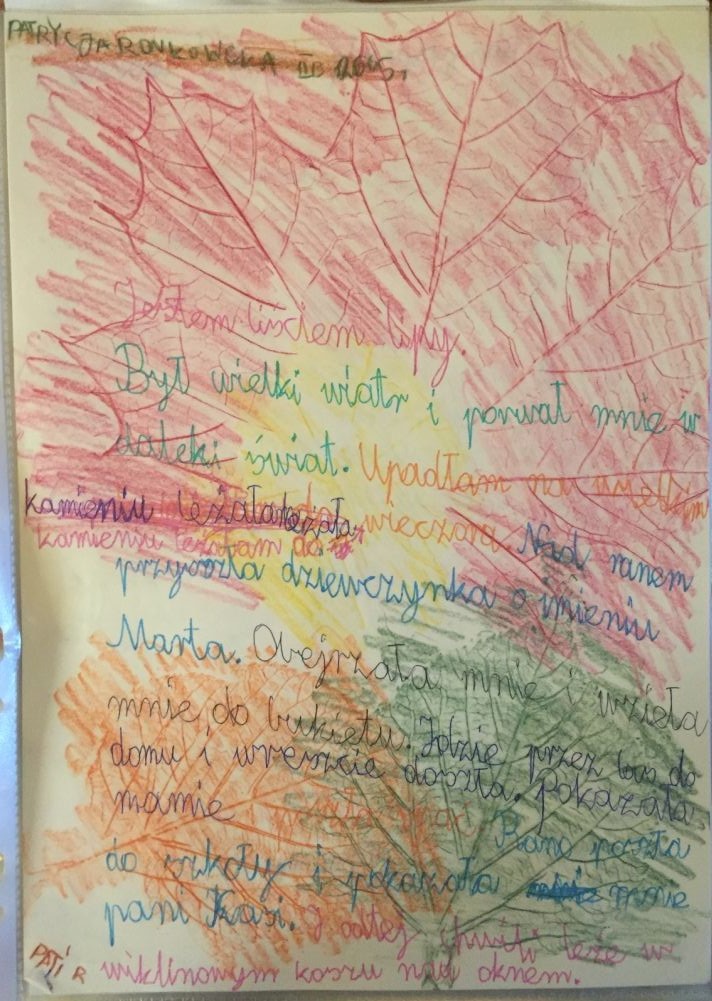 PATRYCJA RONKOWSKA IIB
Jestem liściem lipy.
Był wielki wiatr i porwał mnie w
daleki świat. Upadłam na wielkim
kamieniu leżała leżała wieczora. Nad ranem
kamieniu leżałam do
przyszła dziewczynka o imieniu
Marta. Obejrzała mnie i wzięła
mnie do bukietu. Idzie przez las do
domu i wreszcie doszła. Pokazała
mamie i poszła spać Rano poszła
do szkoły i pokazała mnie
pani Kasi. I odtej chwili leże w
wiklinowym koszu nad oknem.
PATI R